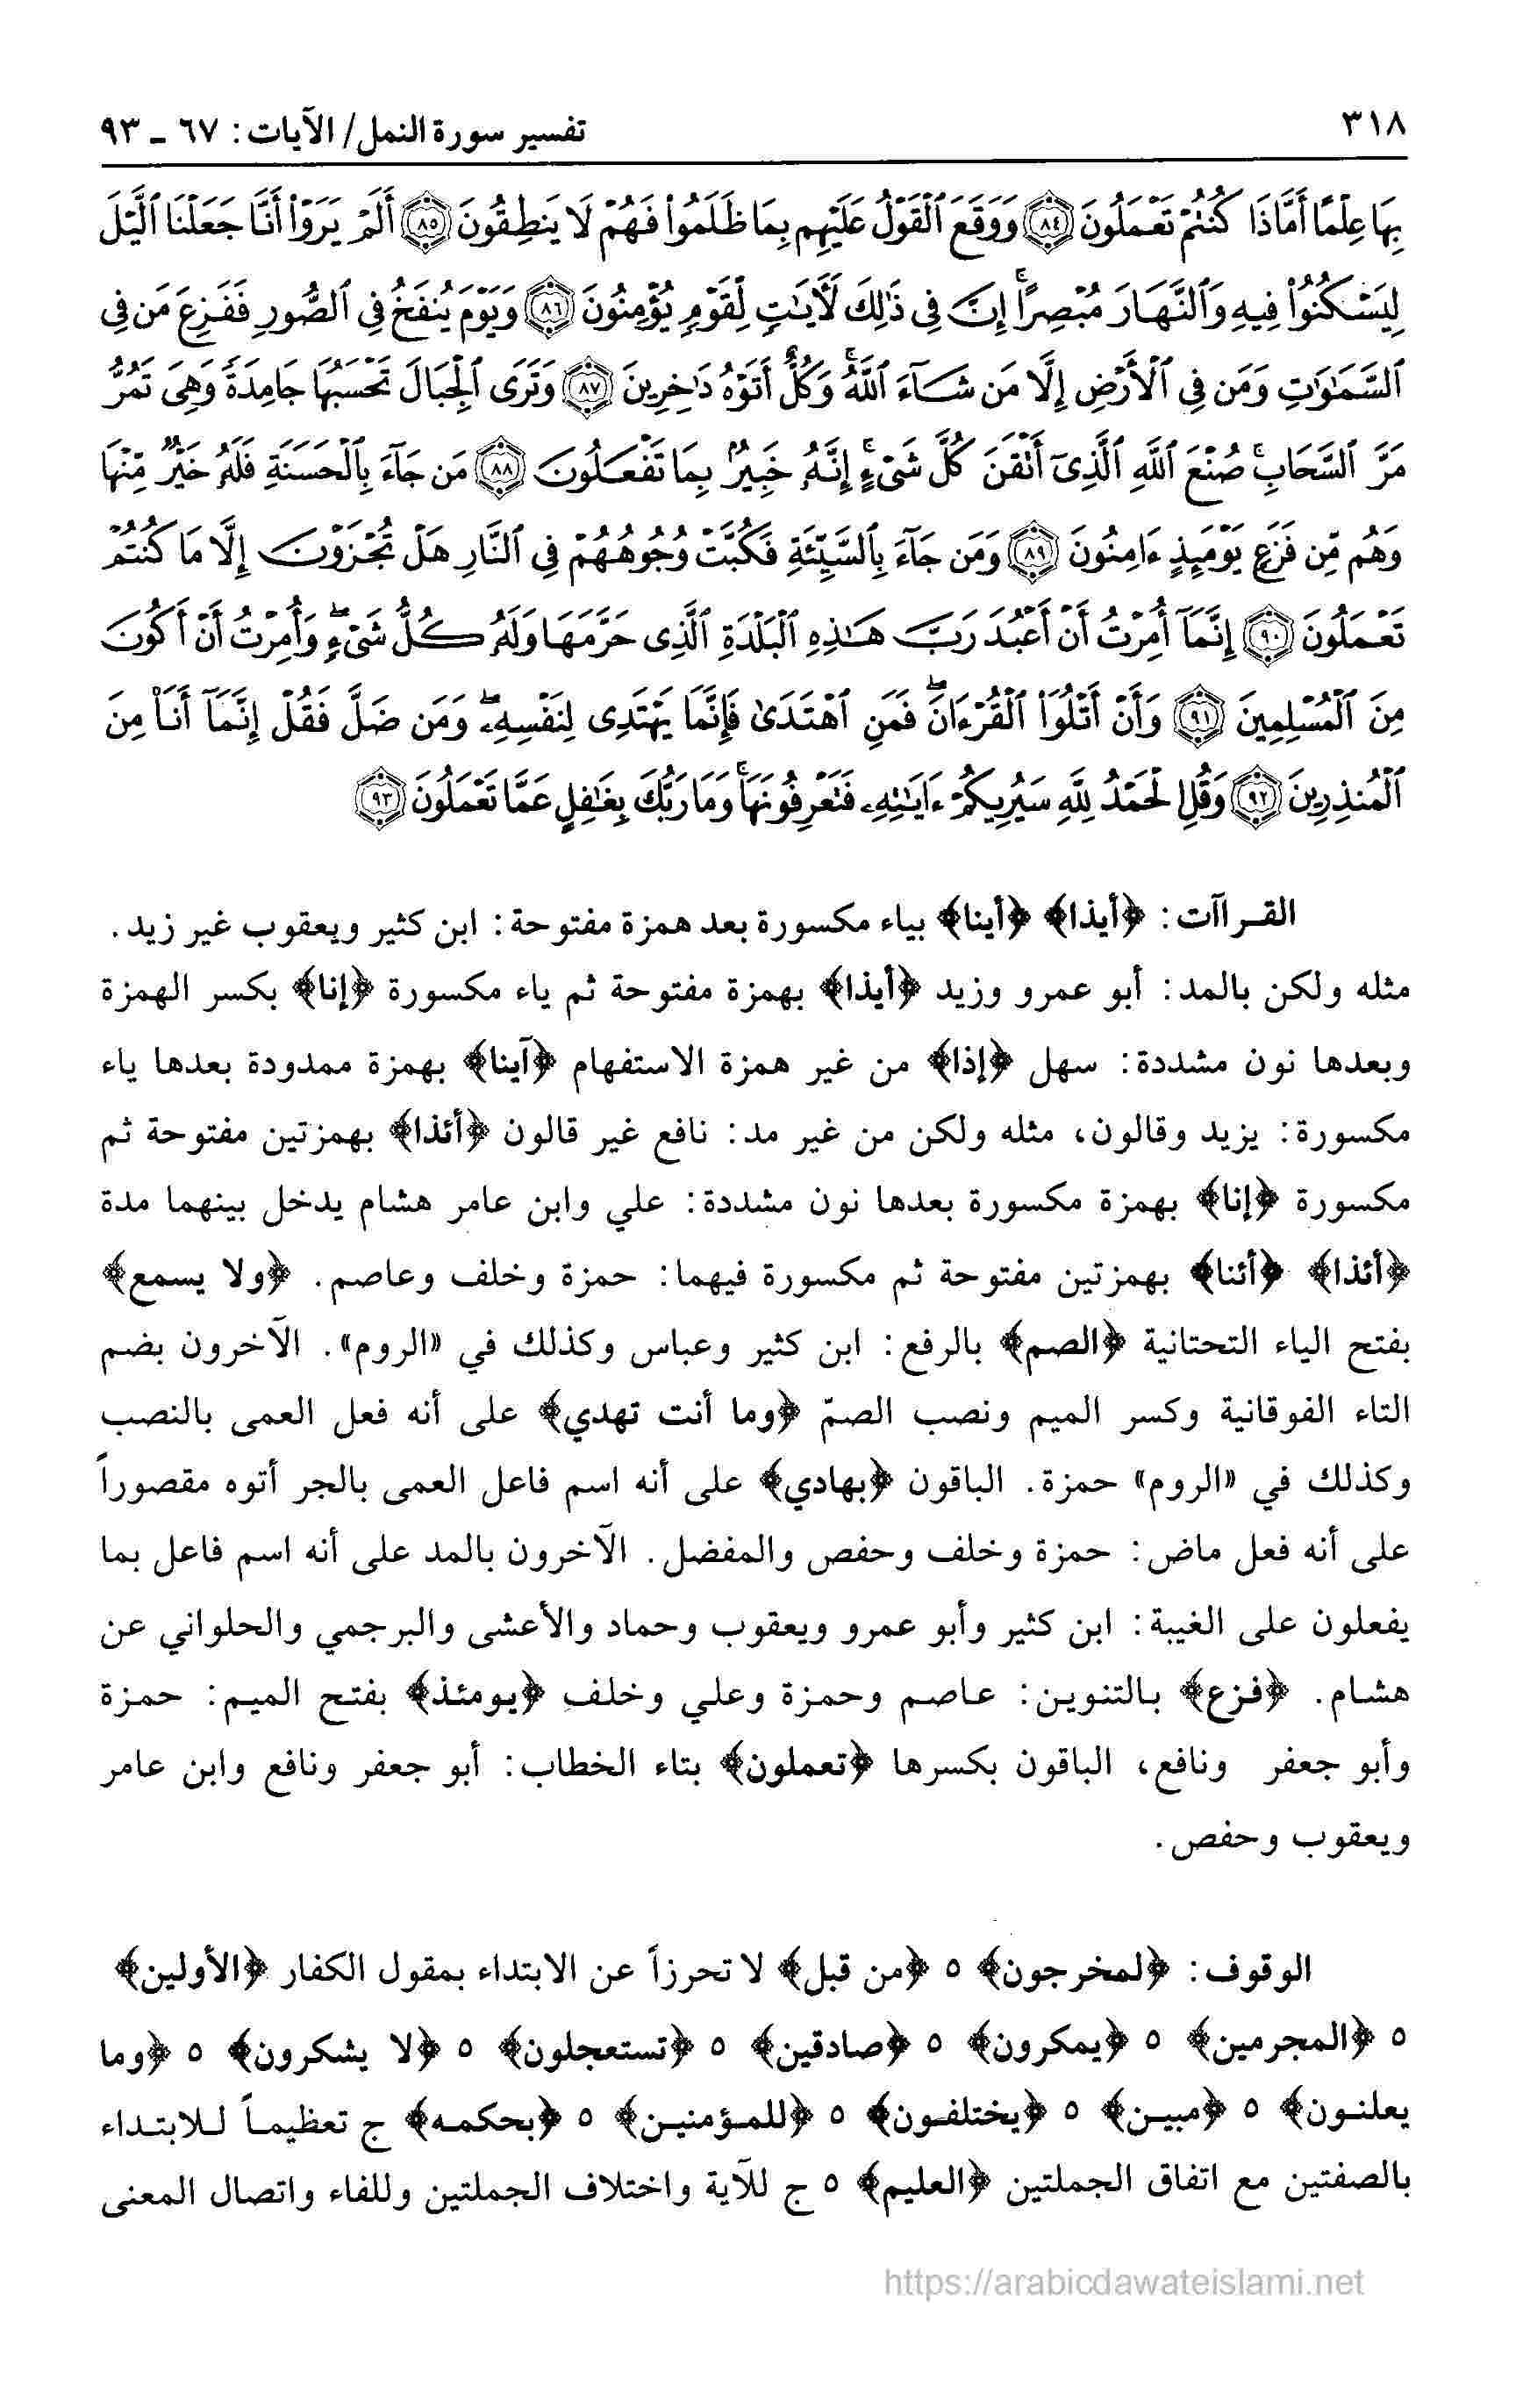 ٣١٨
تفسير سورة النمل/ الآيات: ٦٧ ـ ٩٣
بِهَا عِلْمًا أَمَّاذَا كُنتُمْ تَعْمَلُونَ ﴿٨٤﴾ وَوَقَعَ ٱلْقَوْلُ عَلَيْهِم بِمَا ظَلَمُوا۟ فَهُمْ لَا يَنطِقُونَ ﴿٨٥﴾ أَلَمْ يَرَوْا۟ أَنَّا جَعَلْنَا ٱلَّيْلَ
لِيَسْكُنُوا۟ فِيهِ وَٱلنَّهَارَ مُبْصِرًا ۚ إِنَّ فِى ذَٰلِكَ لَـَٔايَـٰتٍ لِّقَوْمٍ يُؤْمِنُونَ ﴿٨٦﴾ وَيَوْمَ يُنفَخُ فِى ٱلصُّورِ فَفَزِعَ مَن فِى
ٱلسَّمَـٰوَٰتِ وَمَن فِى ٱلْأَرْضِ إِلَّا مَن شَآءَ ٱللَّهُ ۚ وَكُلٌّ أَتَوْهُ دَٰخِرِينَ ﴿٨٧﴾ وَتَرَى ٱلْجِبَالَ تَحْسَبُهَا جَامِدَةً وَهِىَ تَمُرُّ
مَرَّ ٱلسَّحَابِ ۚ صُنْعَ ٱللَّهِ ٱلَّذِىٓ أَتْقَنَ كُلَّ شَىْءٍ ۚ إِنَّهُۥ خَبِيرٌۢ بِمَا تَفْعَلُونَ ﴿٨٨﴾ مَن جَآءَ بِٱلْحَسَنَةِ فَلَهُۥ خَيْرٌ مِّنْهَا
وَهُم مِّن فَزَعٍ يَوْمَئِذٍ ءَامِنُونَ ﴿٨٩﴾ وَمَن جَآءَ بِٱلسَّيِّئَةِ فَكُبَّتْ وُجُوهُهُمْ فِى ٱلنَّارِ هَلْ تُجْزَوْنَ إِلَّا مَا كُنتُمْ
تَعْمَلُونَ ﴿٩٠﴾ إِنَّمَآ أُمِرْتُ أَنْ أَعْبُدَ رَبَّ هَـٰذِهِ ٱلْبَلْدَةِ ٱلَّذِى حَرَّمَهَا وَلَهُۥ كُلُّ شَىْءٍ ۖ وَأُمِرْتُ أَنْ أَكُونَ
مِنَ ٱلْمُسْلِمِينَ ﴿٩١﴾ وَأَنْ أَتْلُوَا۟ ٱلْقُرْءَانَ ۖ فَمَنِ ٱهْتَدَىٰ فَإِنَّمَا يَهْتَدِى لِنَفْسِهِۦ ۖ وَمَن ضَلَّ فَقُلْ إِنَّمَآ أَنَا۠ مِنَ
ٱلْمُنذِرِينَ ﴿٩٢﴾ وَقُلِ لْحَمْدُ لِلَّهِ سَيُرِيكُمْ ءَايَـٰتِهِۦ فَتَعْرِفُونَهَا ۚ وَمَا رَبُّكَ بِغَـٰفِلٍ عَمَّا تَعْمَلُونَ ﴿٩٣﴾
القـراآت: ﴿أيذا﴾ ﴿أينا﴾ بياء مكسورة بعد همزة مفتوحة: ابن كثير ويعقوب غير زيد.
مثله ولكن بالمد: أبو عمرو وزيد ﴿أيذا﴾ بهمزة مفتوحة ثم ياء مكسورة ﴿إنا﴾ بكسر الهمزة
وبعدها نون مشددة: سهل ﴿إذا﴾ من غير همزة الاستفهام ﴿آينا﴾ بهمزة ممدودة بعدها ياء
مكسورة: يزيد وقالون، مثله ولكن من غير مد: نافع غير قالون ﴿أئذا﴾ بهمزتين مفتوحة ثم
مكسورة ﴿إنا﴾ بهمزة مكسورة بعدها نون مشددة: علي وابن عامر هشام يدخل بينهما مدة
﴿أئذا﴾ ﴿أئنا﴾ بهمزتين مفتوحة ثم مكسورة فيهما: حمزة وخلف وعاصم. ﴿ولا يسمع﴾
بفتح الياء التحتانية ﴿الصم﴾ بالرفع: ابن كثير وعباس وكذلك في «الروم». الآخرون بضم
التاء الفوقانية وكسر الميم ونصب الصمّ ﴿وما أنت تهدي﴾ على أنه فعل العمى بالنصب
وكذلك في «الروم» حمزة. الباقون ﴿بهادي﴾ على أنه اسم فاعل العمى بالجر أتوه مقصوراً
على أنه فعل ماض: حمزة وخلف وحفص والمفضل. الآخرون بالمد على أنه اسم فاعل بما
يفعلون على الغيبة: ابن كثير وأبو عمرو ويعقوب وحماد والأعشى والبرجمي والحلواني عن
هشام. ﴿فزع﴾ بالتنوين: عاصم وحمزة وعلي وخلف ﴿يومئذ﴾ بفتح الميم: حمزة
وأبو جعفر ونافع، الباقون بكسرها ﴿تعملون﴾ بتاء الخطاب: أبو جعفر ونافع وابن عامر
ويعقوب وحفص.
الوقوف: ﴿لمخرجون﴾ ٥ ﴿من قبل﴾ لا تحرزاً عن الابتداء بمقول الكفار ﴿الأولين﴾
٥ ﴿المجرمين﴾ ٥ ﴿يمكرون﴾ ٥ ﴿صادقين﴾ ٥ ﴿تستعجلون﴾ ٥ ﴿لا يشكرون﴾ ٥ ﴿وما
يعلنـون﴾ ٥ ﴿مبيـن﴾ ٥ ﴿يختلفـون﴾ ٥ ﴿للمـؤمنيـن﴾ ٥ ﴿بحكمـه﴾ ج تعظيمـاً لـلابتـداء
بالصفتين مع اتفاق الجملتين ﴿العليم﴾ ٥ ج للآية واختلاف الجملتين وللفاء واتصال المعنى
https://arabicdawateislami.net